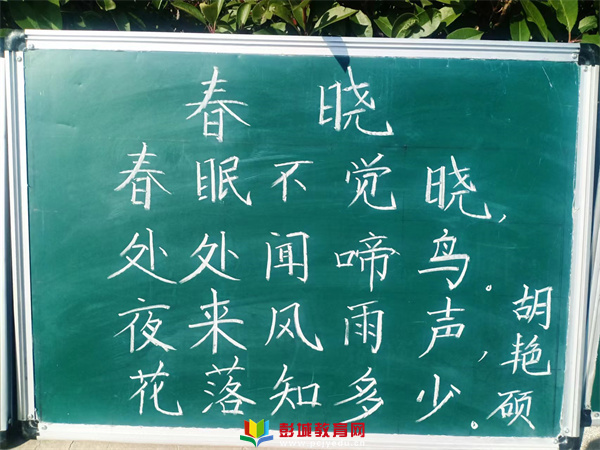 春 晓
春眠不觉晓，
处处闻啼鸟。
夜来风雨声，
花落知多少。
胡艳硕
彭城教育网